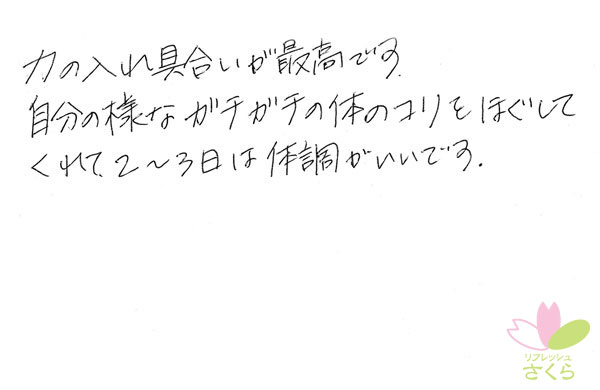 力の入れ具合いが最高です.
自分の様なガチガチの体のコリをほぐして
くれて、2～3日は体調がいいです.
リフレッシュ
さくら